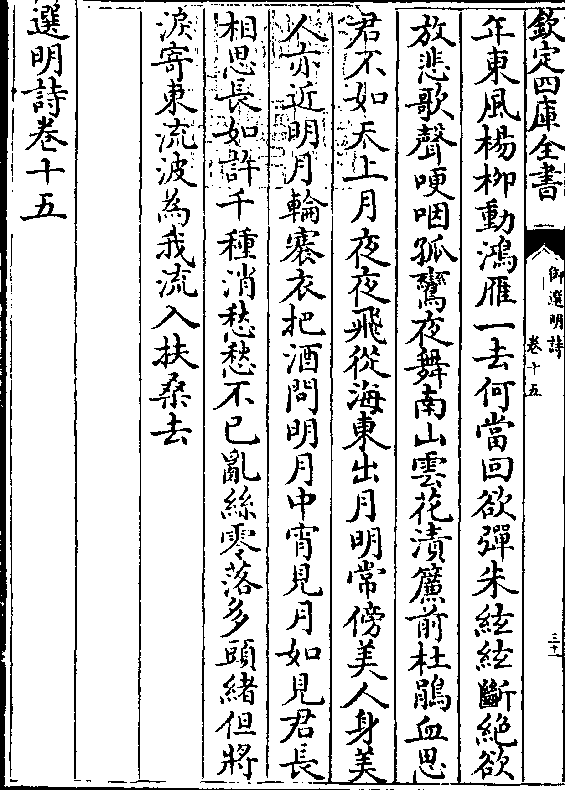 欽定四庫全書
御選明詩
卷十五
三十一
年東風楊柳動鴻雁一去何當回欲彈朱絃絃斷絕欲
放悲歌聲哽咽孤鸞夜舞南山雲花漬簾前杜鵑血思
君不如天上月夜夜飛從海東出月明常傍美人身美
人亦近明月輪褰衣把酒問明月中宵見月如見君長
相思長如許千種消愁愁不已亂絲零落多頭緒但將
淚寄東流波為我流入扶桑去
選明詩卷十五